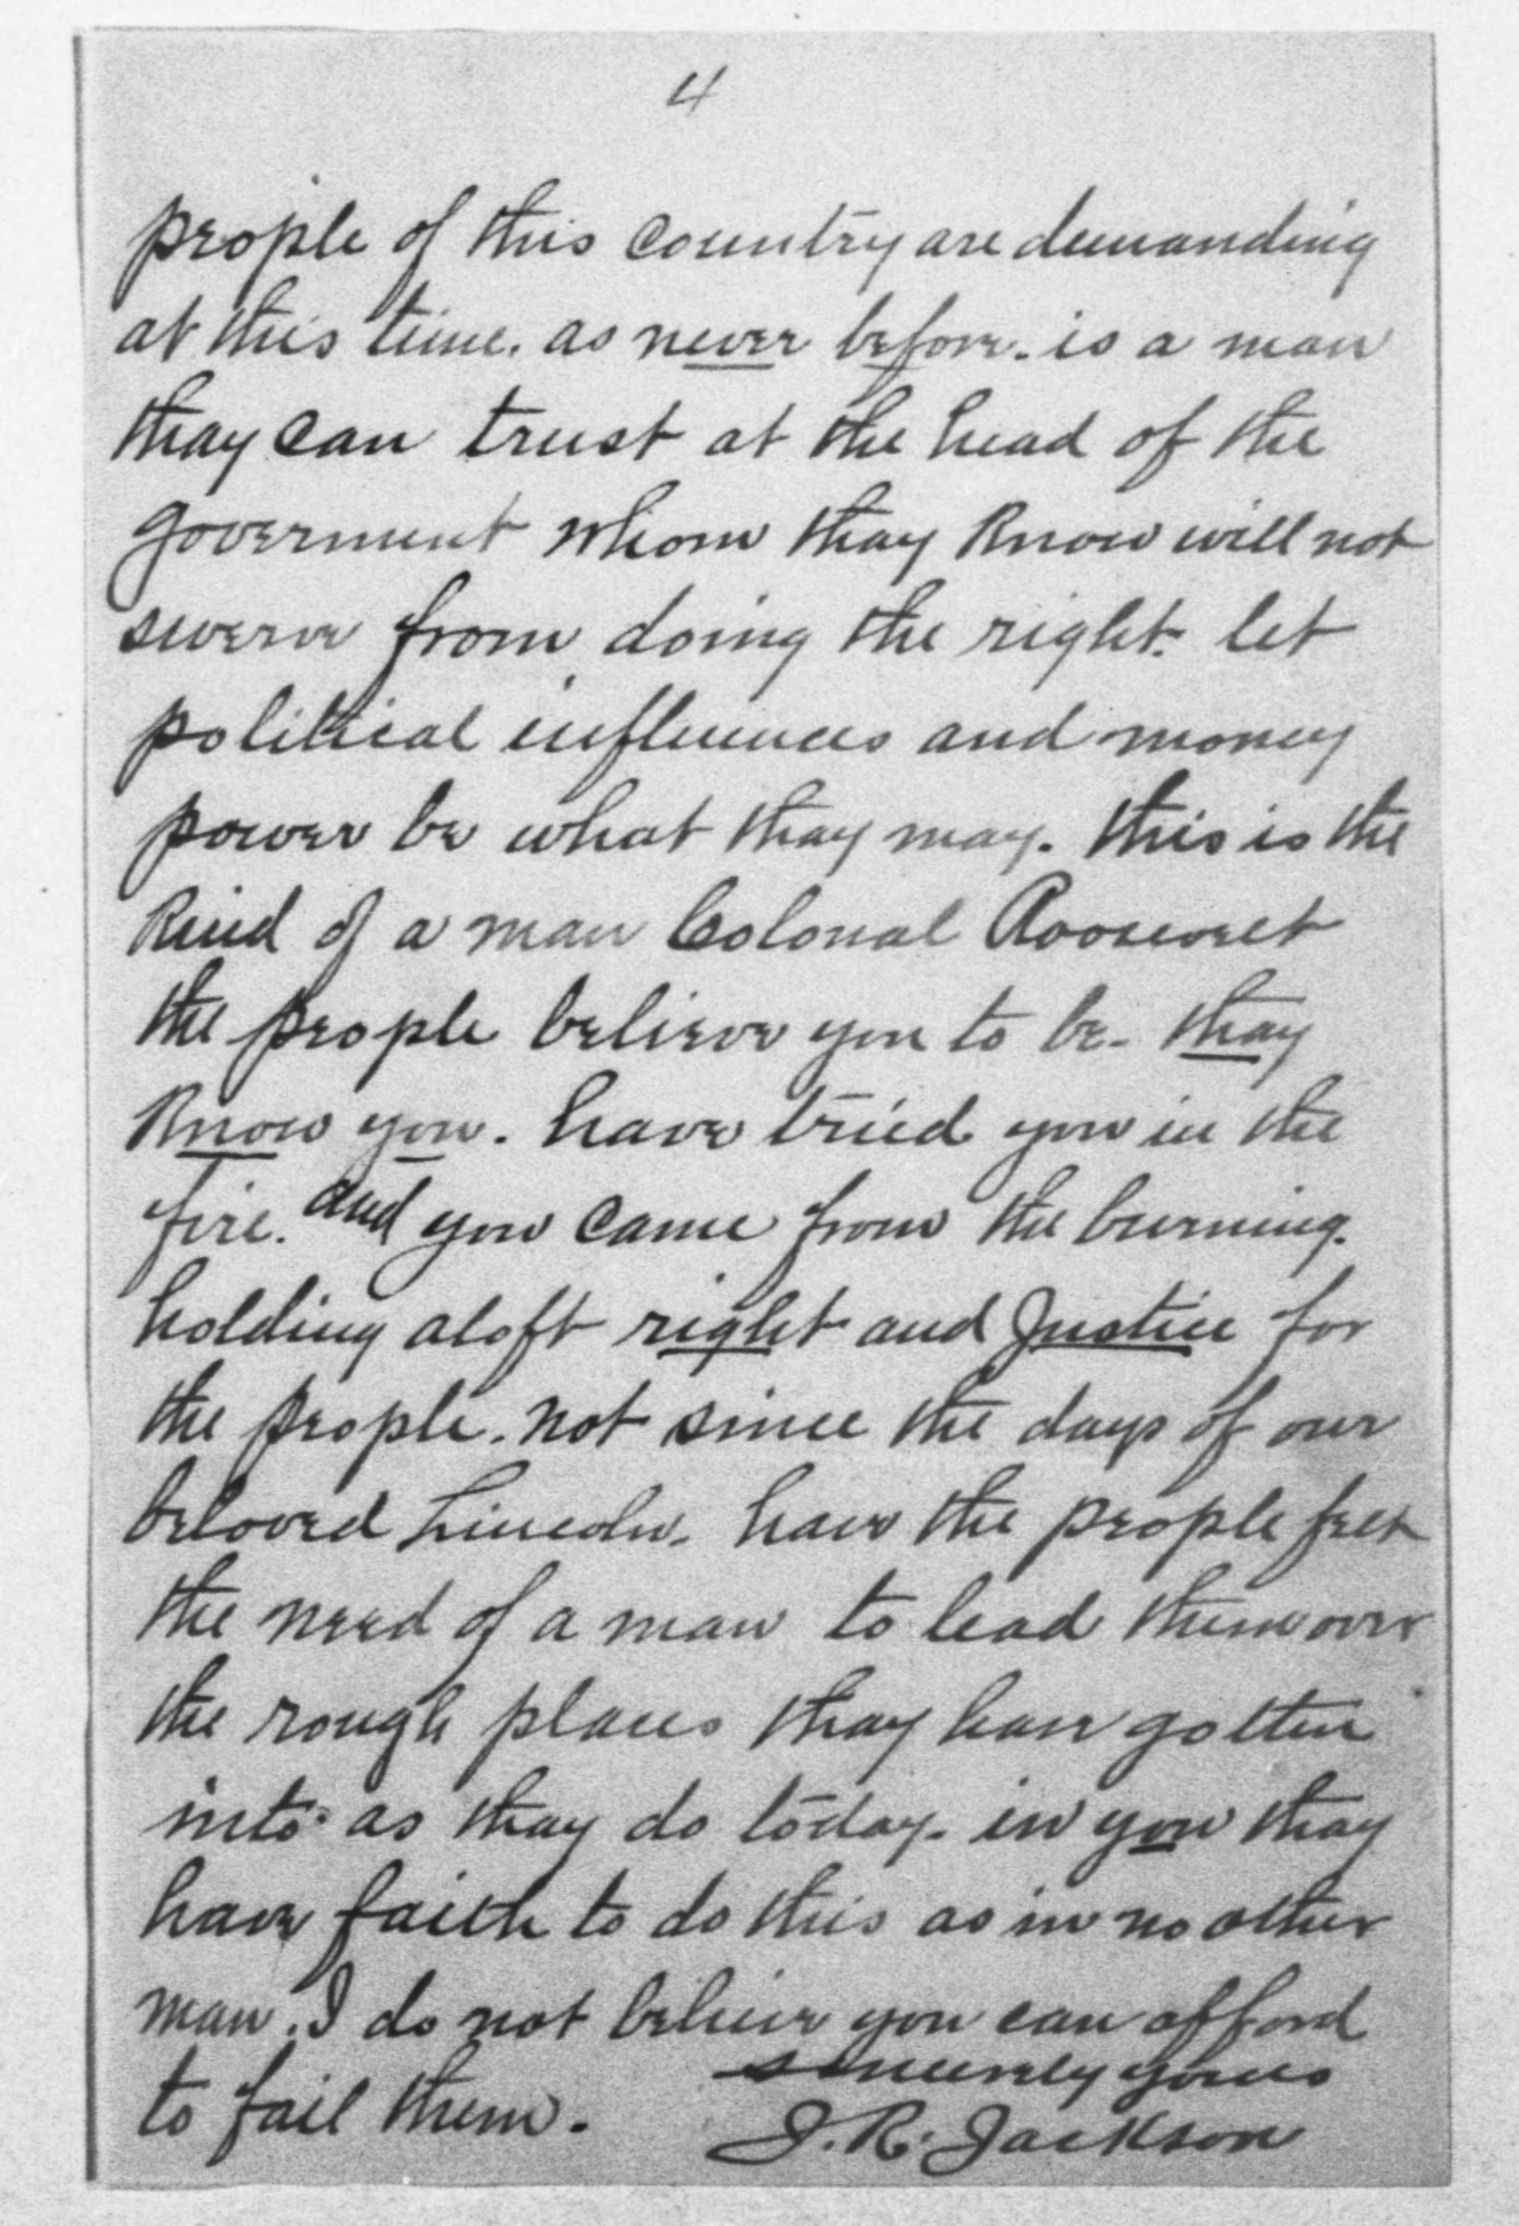 4
people of this country are demanding
at this time. as never before. is a man
thay can trust at the head of the
goverment whom thay know will not
swerve from doing the right. let
political influences and money
power be what thay may. this is the
kind of a man Colonal Roosevelt
the people believe you to be. thay
know you. have tried you in the
fire. and you came from the burning.
holding aloft right and Justice for
the people. not since the days of our
beloved Lincoln. have the people felt
the need of a man to lead them over
the rough places thay have gotten
into as thay do today. in you thay
have faith to do this as in no other
man. I do not believe you can afford
to fail them. sincerely yours
J. R. Jackson